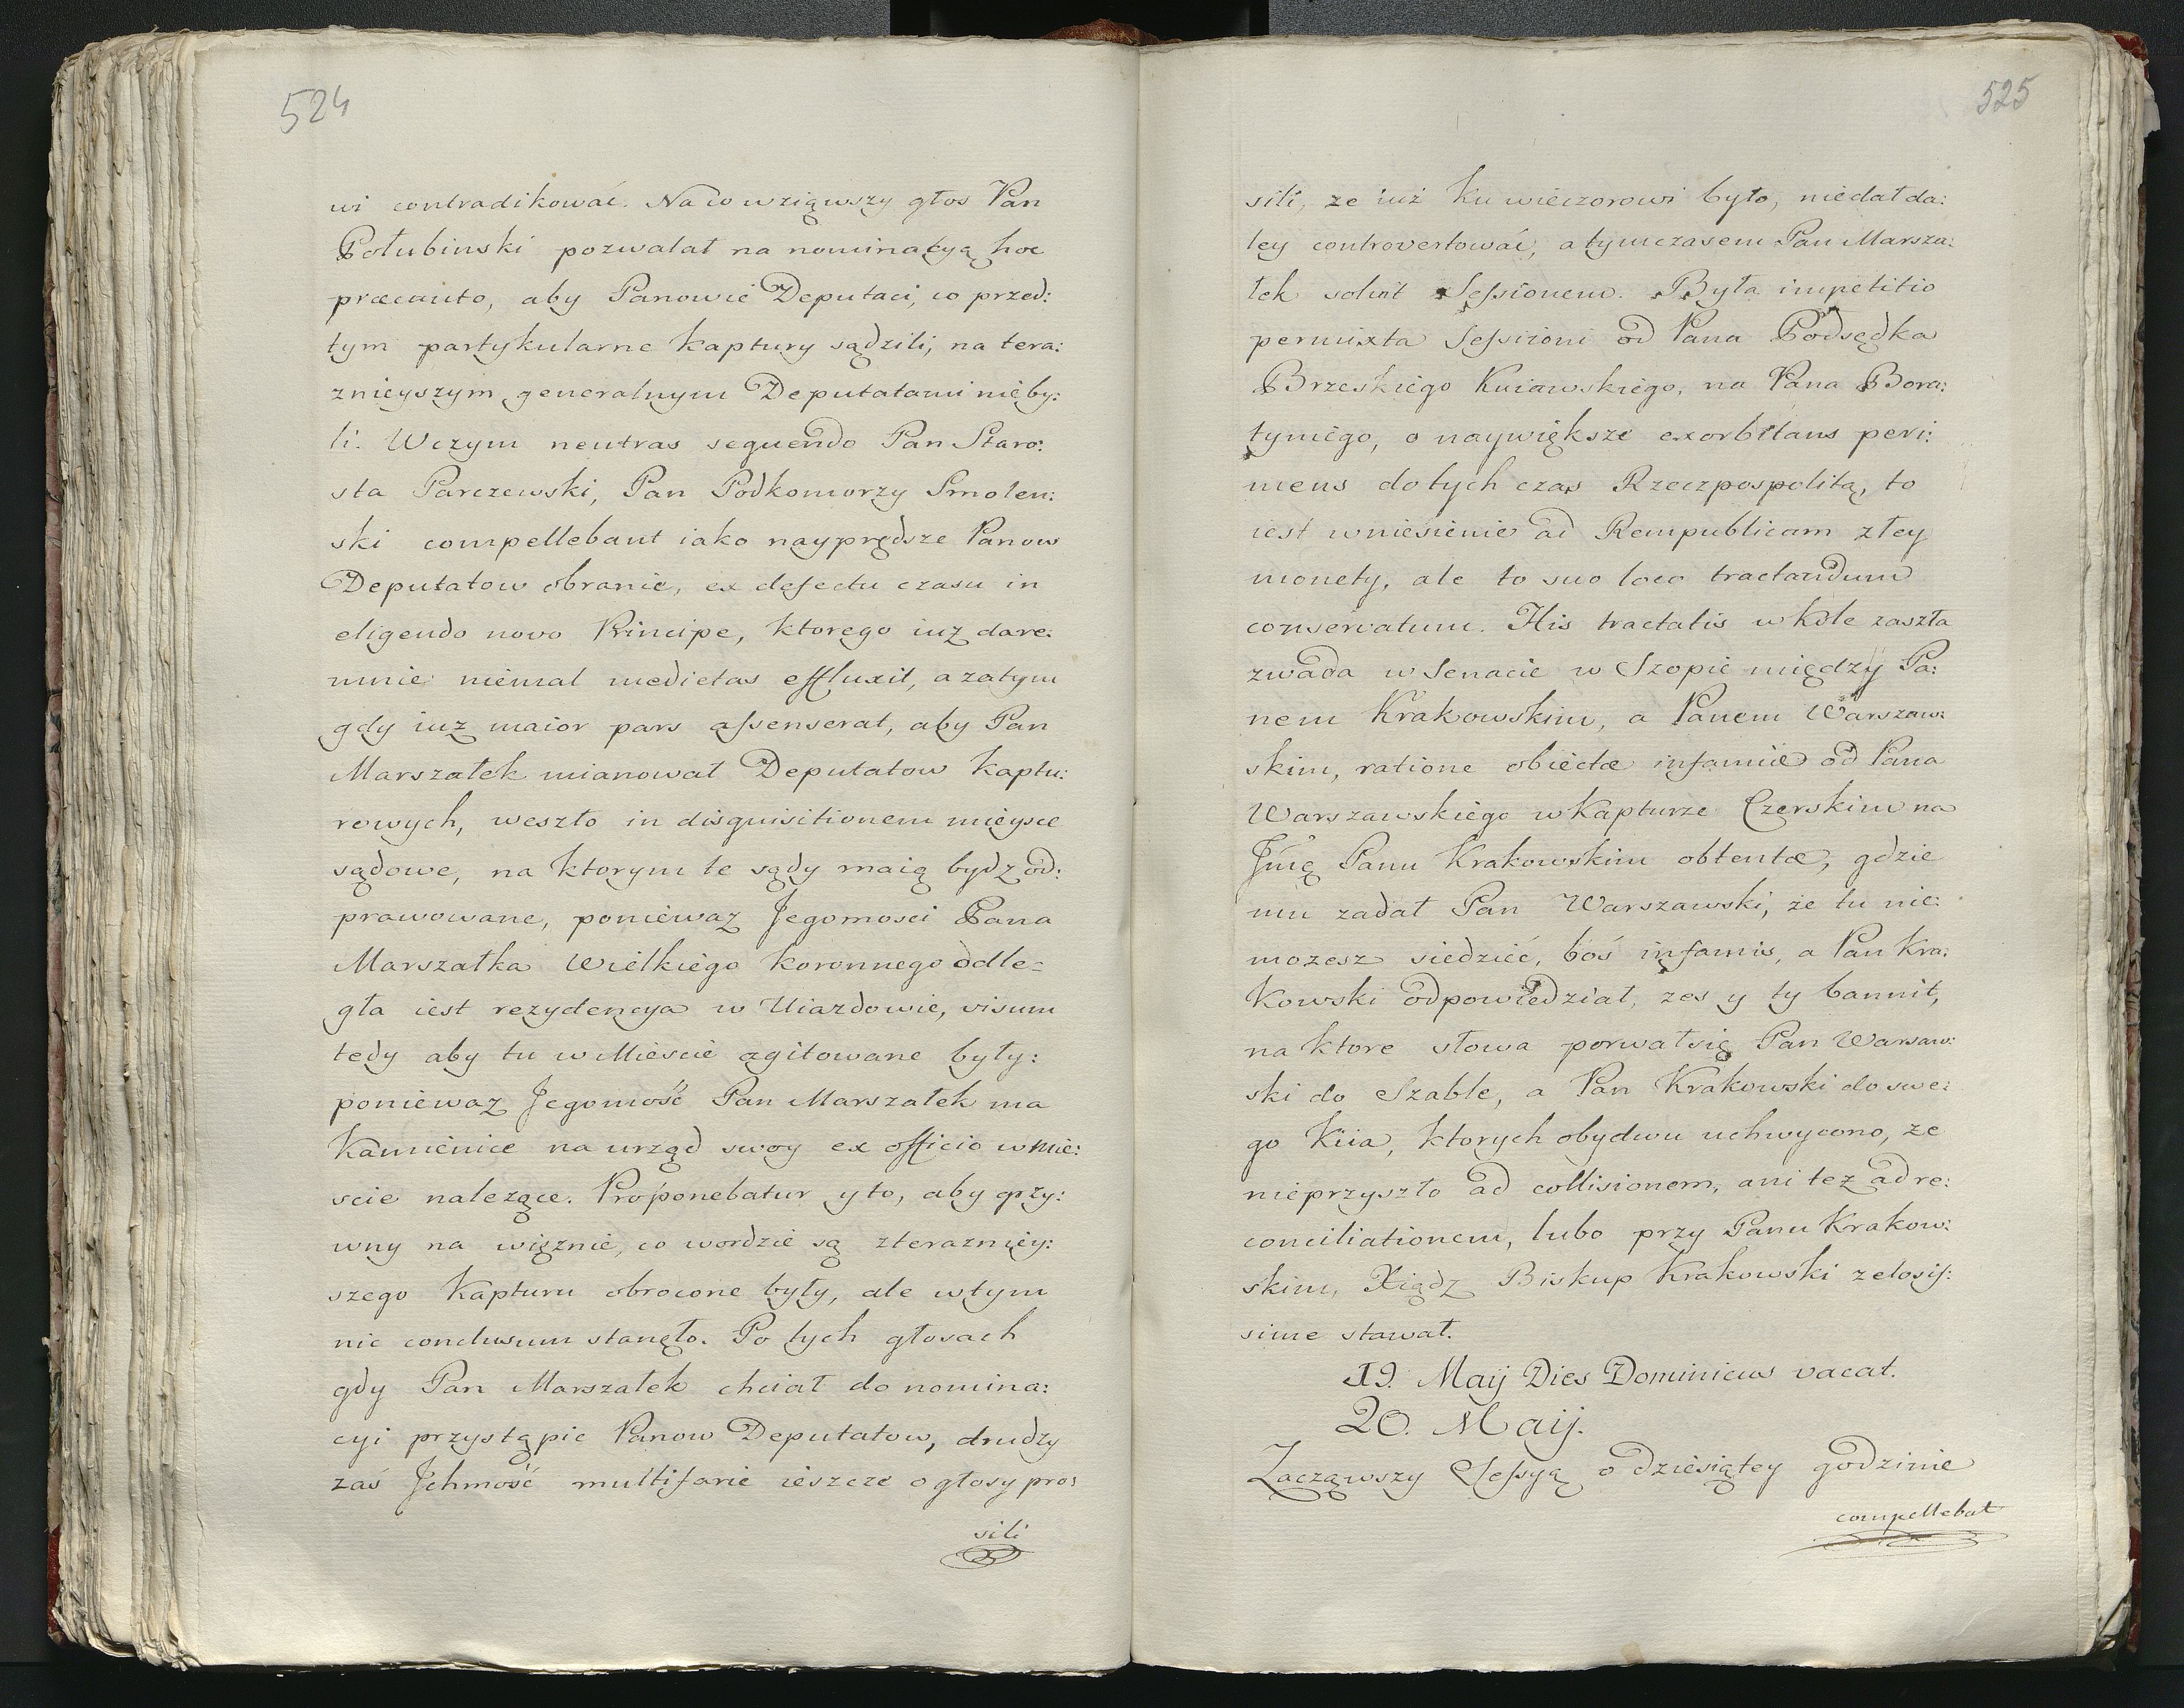 524
wi contradikować. Na co wziąwszy głos Pan
Połubinski pozwalał na nominacyą hoc
præcauto, aby Panowie Deputaci, co przed:
tym partykularne kaptury sądzili, na tera:
znieyszym generalnym Deputatami nieby:
li. Wczym neutras sequendo Pan Staro:
sta Parczewski, Pan Podkomorzy Smolen:
ski compellebant iako nayprędsze Panow
Deputatow obranie, ex defectu czasu in
eligendo novo Principe, ktorego iuz dare:
mnie niemal medietas effluxit, a zatym
gdy iuz maior pars assenserat, aby Pan
Marszałek mianował Deputatow kaptu:
rowych, weszło in disquisitionem mieysce
sądowe, na ktorym te sądy maią bydz od:
prawowane, poniewaz Jegomosci Pana
Marszałka Wielkiego koronnego odle=
gła iest rezydencya w Uiazdowie, visum
tedy aby tu w Miescie agitowane były:
poniewaz Jegomość Pan Marszałek ma
Kamienice na urząd swoy ex officio w mie:
scie nalezące. Proponebatur y to, aby grzy:
wny na więznie, co wordzie są zterazniey:
szego Kapturu obrocone były, ale wtym
nic conclusum stanęło. Po tych głosach
gdy Pan Marszałek chciał do nomina:
cyi przystąpic Panow Deputatow, drudzy
zaś Jchmość multifarie ieszcze o głosy pro:
sili
525
sili, ze iuż ku wieczorowi było, niedał da:
ley controvertować, a tymczasem Pan Marsza:
łek solvit Sessionem. Była impetitio
permixta Sessioni od Pana Podsędka
Brzeskiego Kuiawskiego, na Pana Bora:
tyniego, o naywiększe exorbitans peri:
mens do tych czas Rzeczpospolitą, to
iest wniesienie ad Rempublicam złey
monety, ale to suo loco tractandum
conservatum. His tractatis w kole zaszła
zwada w Senacie w Szopie między Pa:
nem Krakowskim, a Panem Warszaw:
skim, ratione obiectæ infamiæ od Pana
Warszawskiego w Kapturze Czerskim na
Jmę Panu Krakowskim obtentæ, gdzie
mu zadał Pan Warszawski, że tu nie:
mozesz siedzieć, boś infamis, a Pan Kra:
kowski odpowiedział, zes y ty bannit,
na ktore słowa porwał się Pan Warsaw:
ski do Szable, a Pan Krakowski do swe:
go Kiia, ktorych obydwu uchwycono, ze
nieprzyszło ad collisionem, ani tez ad re:
conciliationem, lubo przy Panu Krakow:
skim, Xiądz Biskup Krakowski zelosis:
sime stawał.
19. Maij Dies Dominicus vacat.
20. Maij.
Zacząwszy Sessyą o dziesiątey godzinie
compellebat